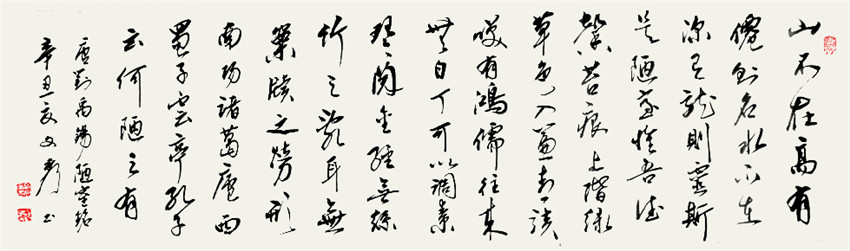 山不在高有
僊則名水不在
深有龍則靈斯
是陋室惟吾德
馨苔痕上階綠
草色入簾青談
笑有鴻儒往來
無白丁可以調素
琴閱金經無絲
竹之亂耳無
案牘之勞形
南陽諸葛廬西
蜀子雲亭孔子
云何陋之有
唐劉禹錫陋室銘
辛丑夏文書